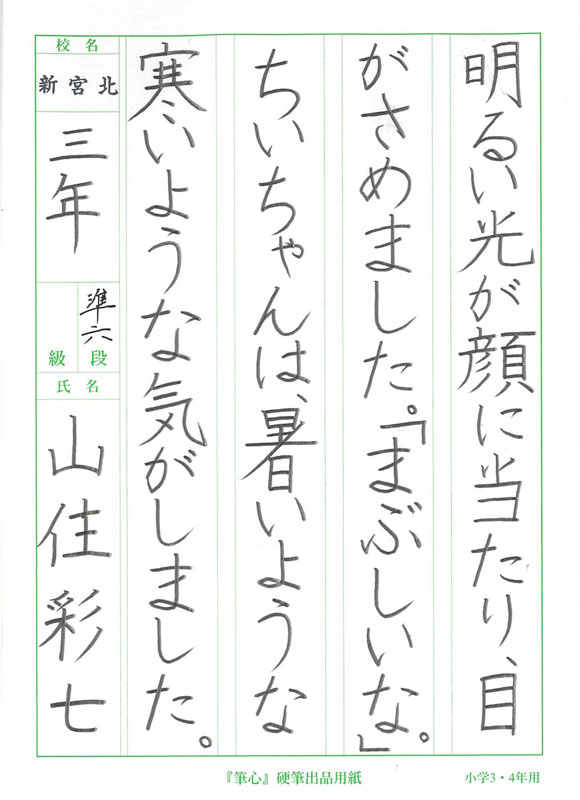 明るい光が顔に当たり、目
がさめました。「まぶしいな。」
ちいちゃんは、暑いような
寒いような気がしました。
校名
新宮北
三年
準六
段
級
氏名
山住彩七
『筆心』硬筆出品用紙
小学3・4年用